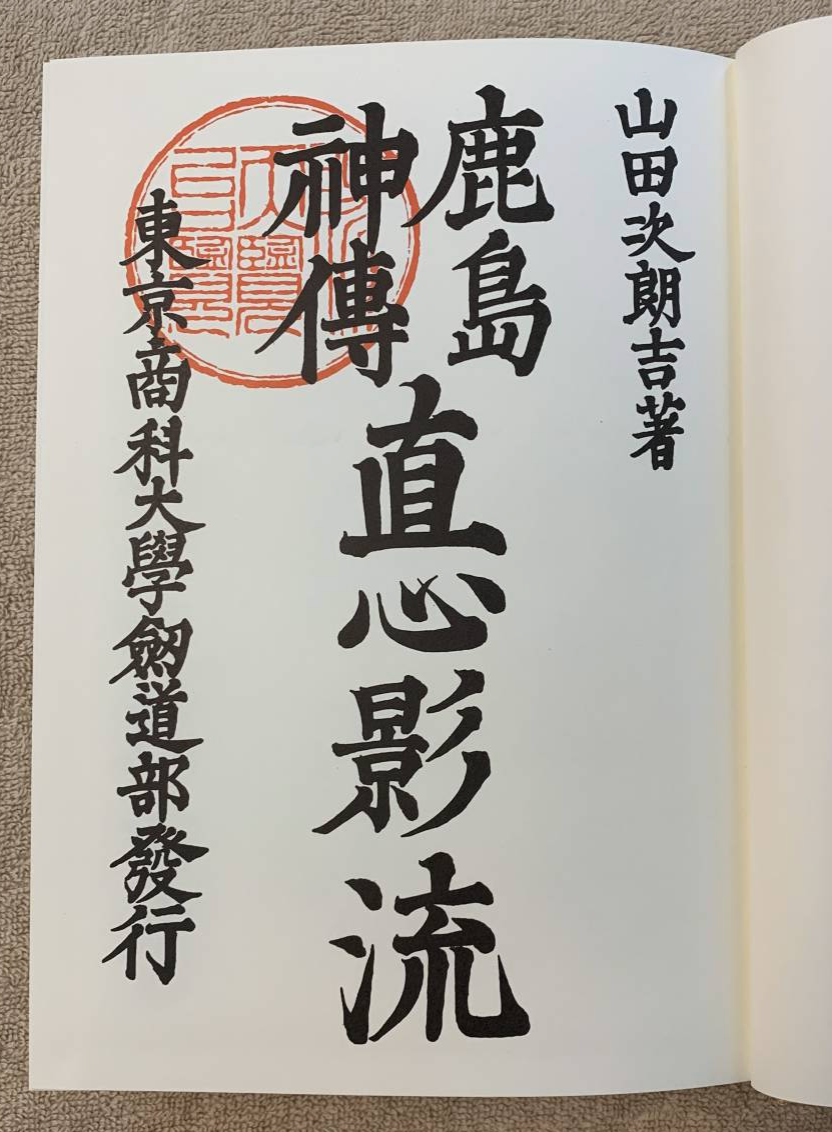 山田次朗吉著
鹿島
神傳
直心影流
東京商科大學劒道部發行